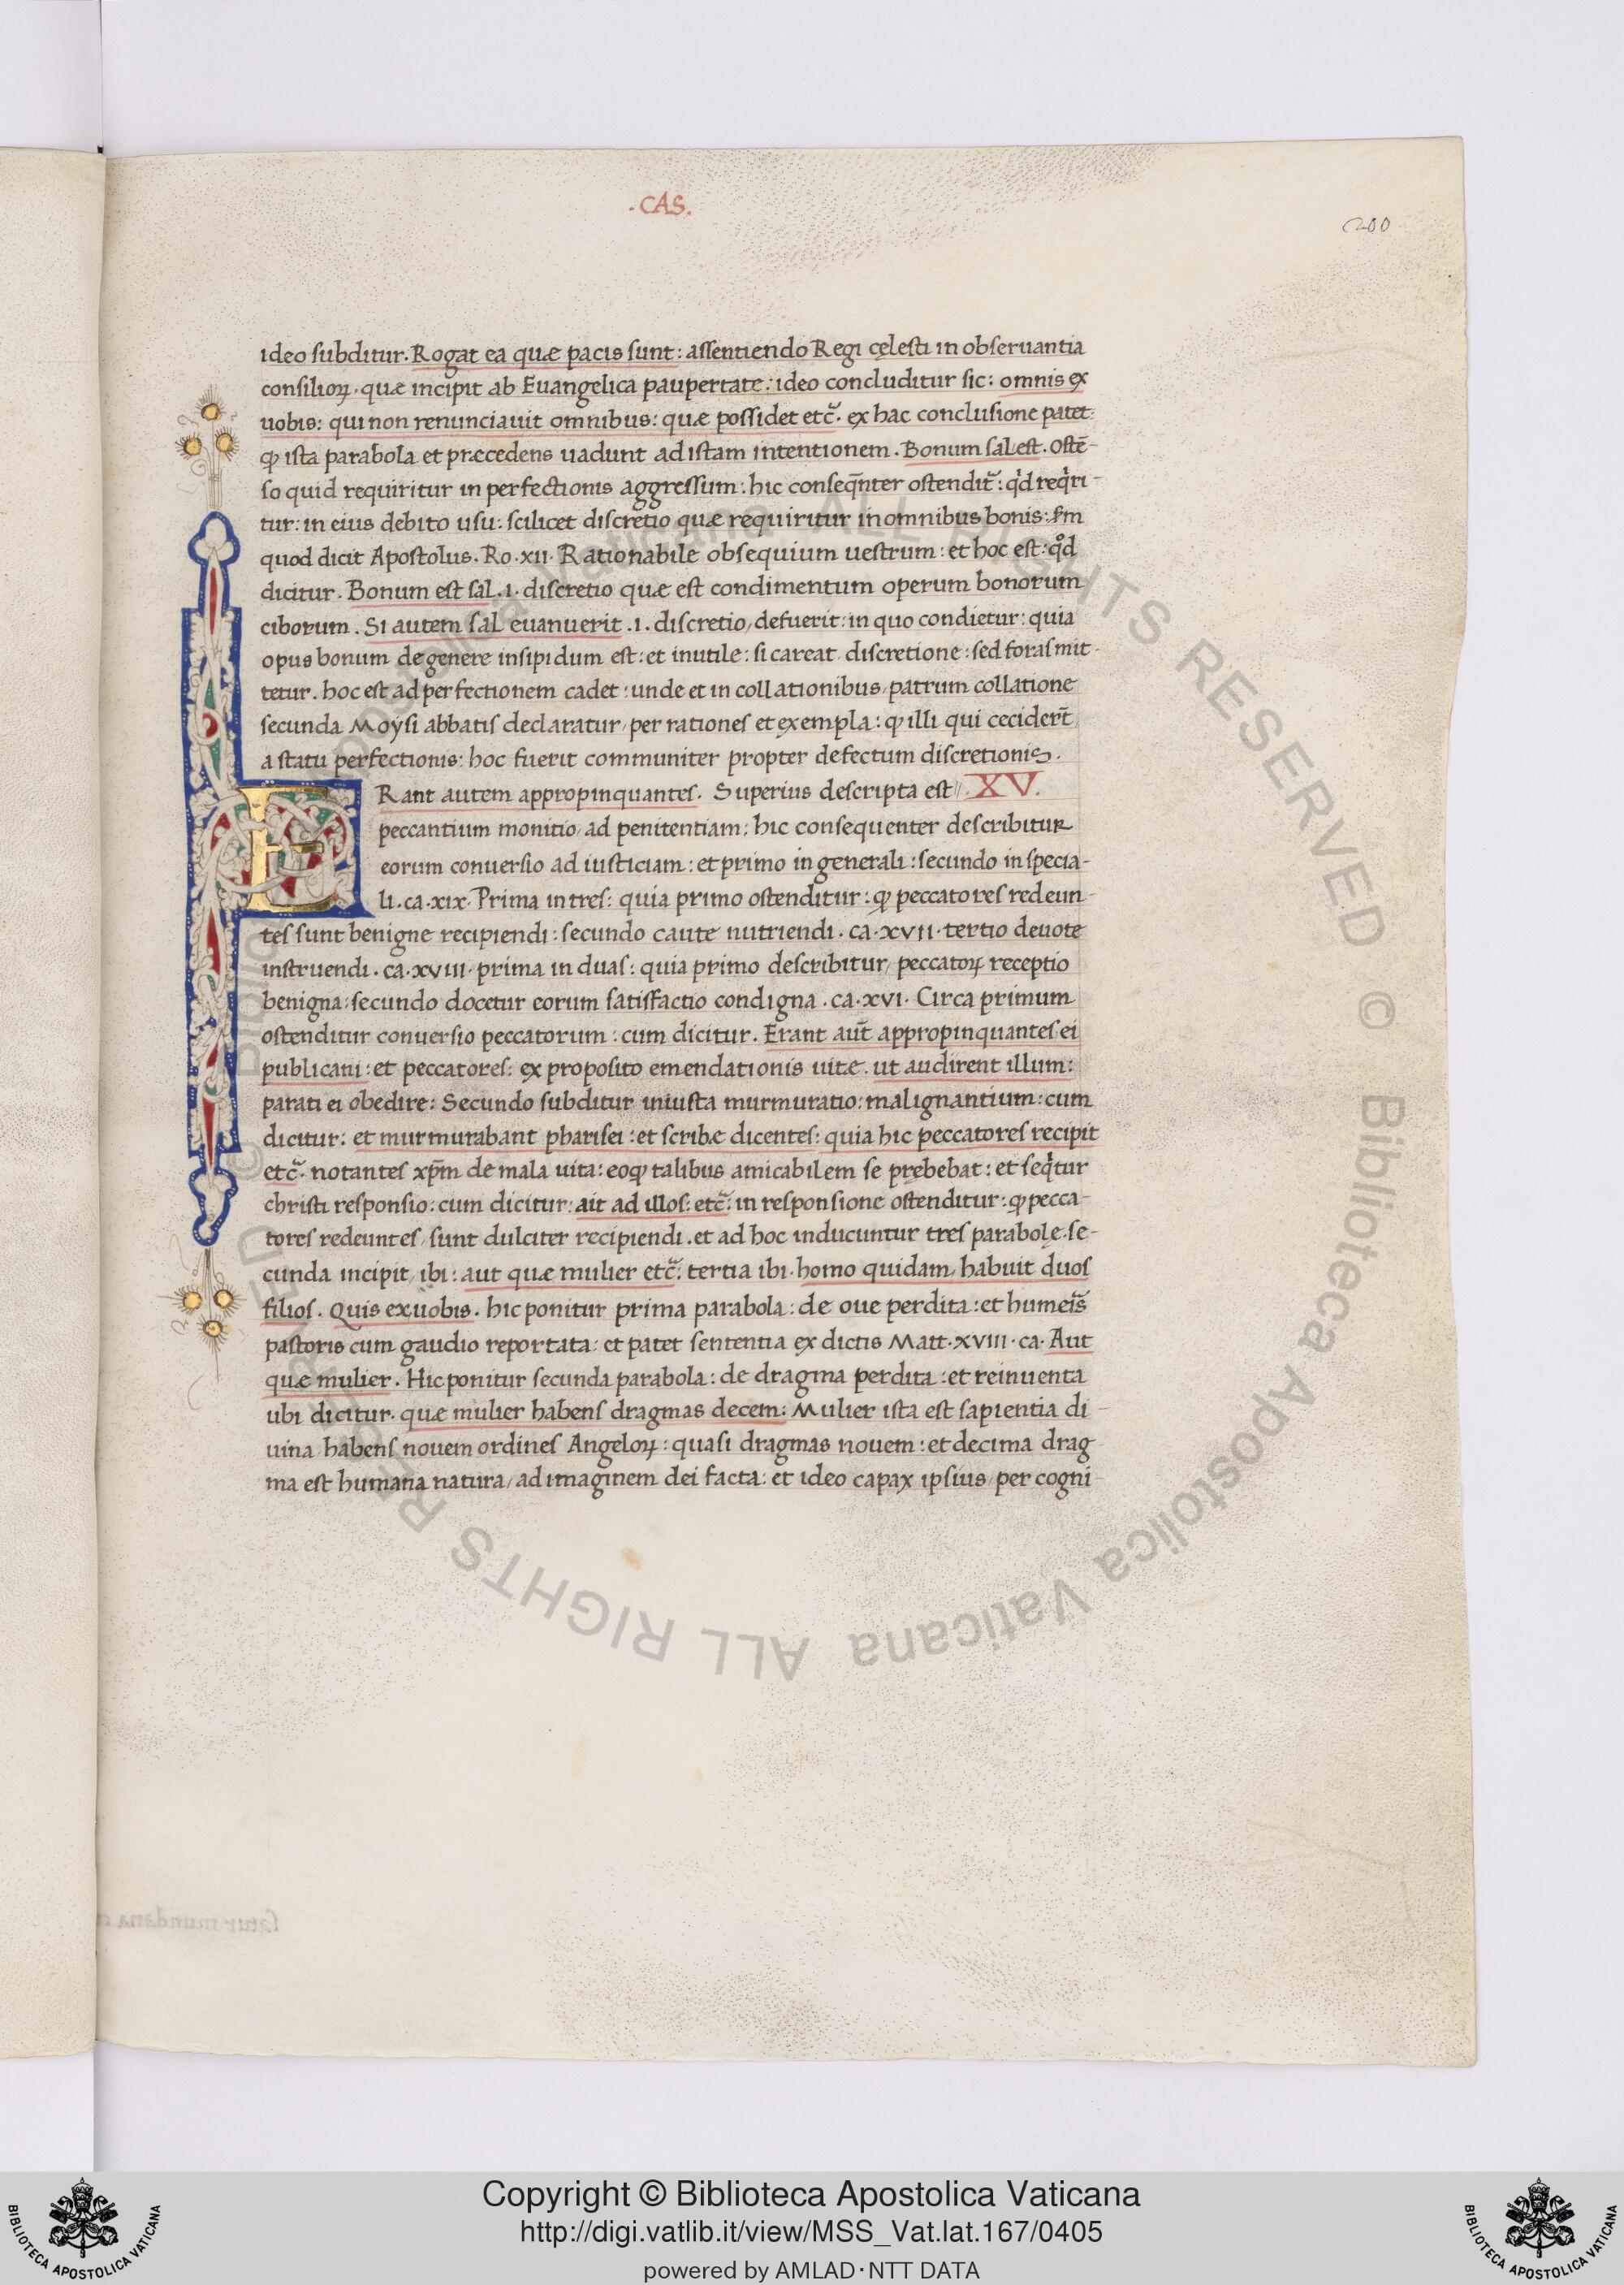 .CAS.
200
ideo subditur. Rogat ea quæ pacis sunt: assentiendo Regi cęlesti in obseruantia
consilioꝝ. quæ incipit ab Euangelica paupertate: ideo concluditur sic: omnis ex
uobis: qui non renunciauit omnibus: quæ possidet etc̃. ex hac conclusione patet:
ꝙ ista parabola et præcedens uadunt ad istam intentionem. Bonum sal est. Ostē-
so quid requiritur in perfectionis aggressum: hic conseq̄nter ostendit̃: qͥd reqͥri-
tur: in eius debito usu: scilicet discretio quæ requiritur in omnibus bonis: ẜm
quod dicit Apostolus. Ro. xii. Rationabile obsequium uestrum: et hoc est: qͦd
dicitur. Bonum est sal .i. discretio quæ est condimentum operum bonorum
ciborum. Si autem sal euanuerit .i. discretio, defuerit: in quo condietur: quia
opus bonum de genere insipidum est: et inutile: si careat discretione: sed foras mit-
tetur. hoc est ad perfectionem cadet: unde et in collationibus, patrum collatione
secunda Moysi abbatis declaratur, per rationes et exempla: ꝙ illi qui cecidert̄
a statu perfectionis: hoc fuerit communiter propter defectum discretionis.
ERant autem appropinquantes. Superius descripta est XV.
peccantium monitio, ad penitentiam: hic consequenter describitur
eorum conuersio ad iusticiam: et primo in generali: secundo in specia-
li. ca. xix. Prima in tres: quia primo ostenditur: ꝙ peccatores redeun-
tes sunt benigne recipiendi: secundo caute nutriendi. ca. xvii. tertio deuote
instruendi. ca. xviii. prima in duas: quia primo describitur, peccatoꝝ receptio
benigna: secundo docetur eorum satisfactio condigna. ca. xvi. Circa primum
ostenditur conuersio peccatorum: cum dicitur. Erant aut̄ appropinquantes ei
publicani: et peccatores: ex proposito emendationis uitæ. ut audirent illum:
parati ei obedire: Secundo subditur iniusta murmuratio: malignantium: cum
dicitur: et murmurabant pharisei: et scribæ dicentes: quia hic peccatores recipit
etc̃. notantes xp̄m de mala uita: eoꝙ talibus amicabilem se prębebat: et seqͥtur
christi responsio: cum dicitur: ait ad illos: etc̃: in responsione ostenditur: ꝙ pecca-
tores redeuntes, sunt dulciter recipiendi. et ad hoc inducuntur tres parabolę. se-
cunda incipit, ibi: aut quæ mulier etc̃: tertia ibi. homo quidam, habuit duos
filios. Quis ex uobis. hic ponitur prima parabola: de oue perdita: et humeris
pastoris cum gaudio reportata: et patet sententia ex dictis Matt. xviii. ca. Aut
quæ mulier. Hic ponitur secunda parabola: de dragma perdita: et reinuenta
ubi dicitur. quæ mulier habens dragmas decem: Mulier ista est sapientia di-
uina habens nouem ordines Angeloꝝ: quasi dragmas nouem: et decima drag
ma est humana natura, ad imaginem dei facta: et ideo capax ipsius, per cogni-
© Biblioteca Apostolica Vaticana ALL RIGHTS RESERVED © Biblioteca Apostolica Vaticana ALL RIGHTS RESERVED
Copyright © Biblioteca Apostolica Vaticana
http://digi.vatlib.it/view/MSS_Vat.lat.167/0405
powered by AMLAD·NTT DATA
BIBLIOTECA APOSTOLICA VATICANA
BIBLIOTECA APOSTOLICA VATICANA